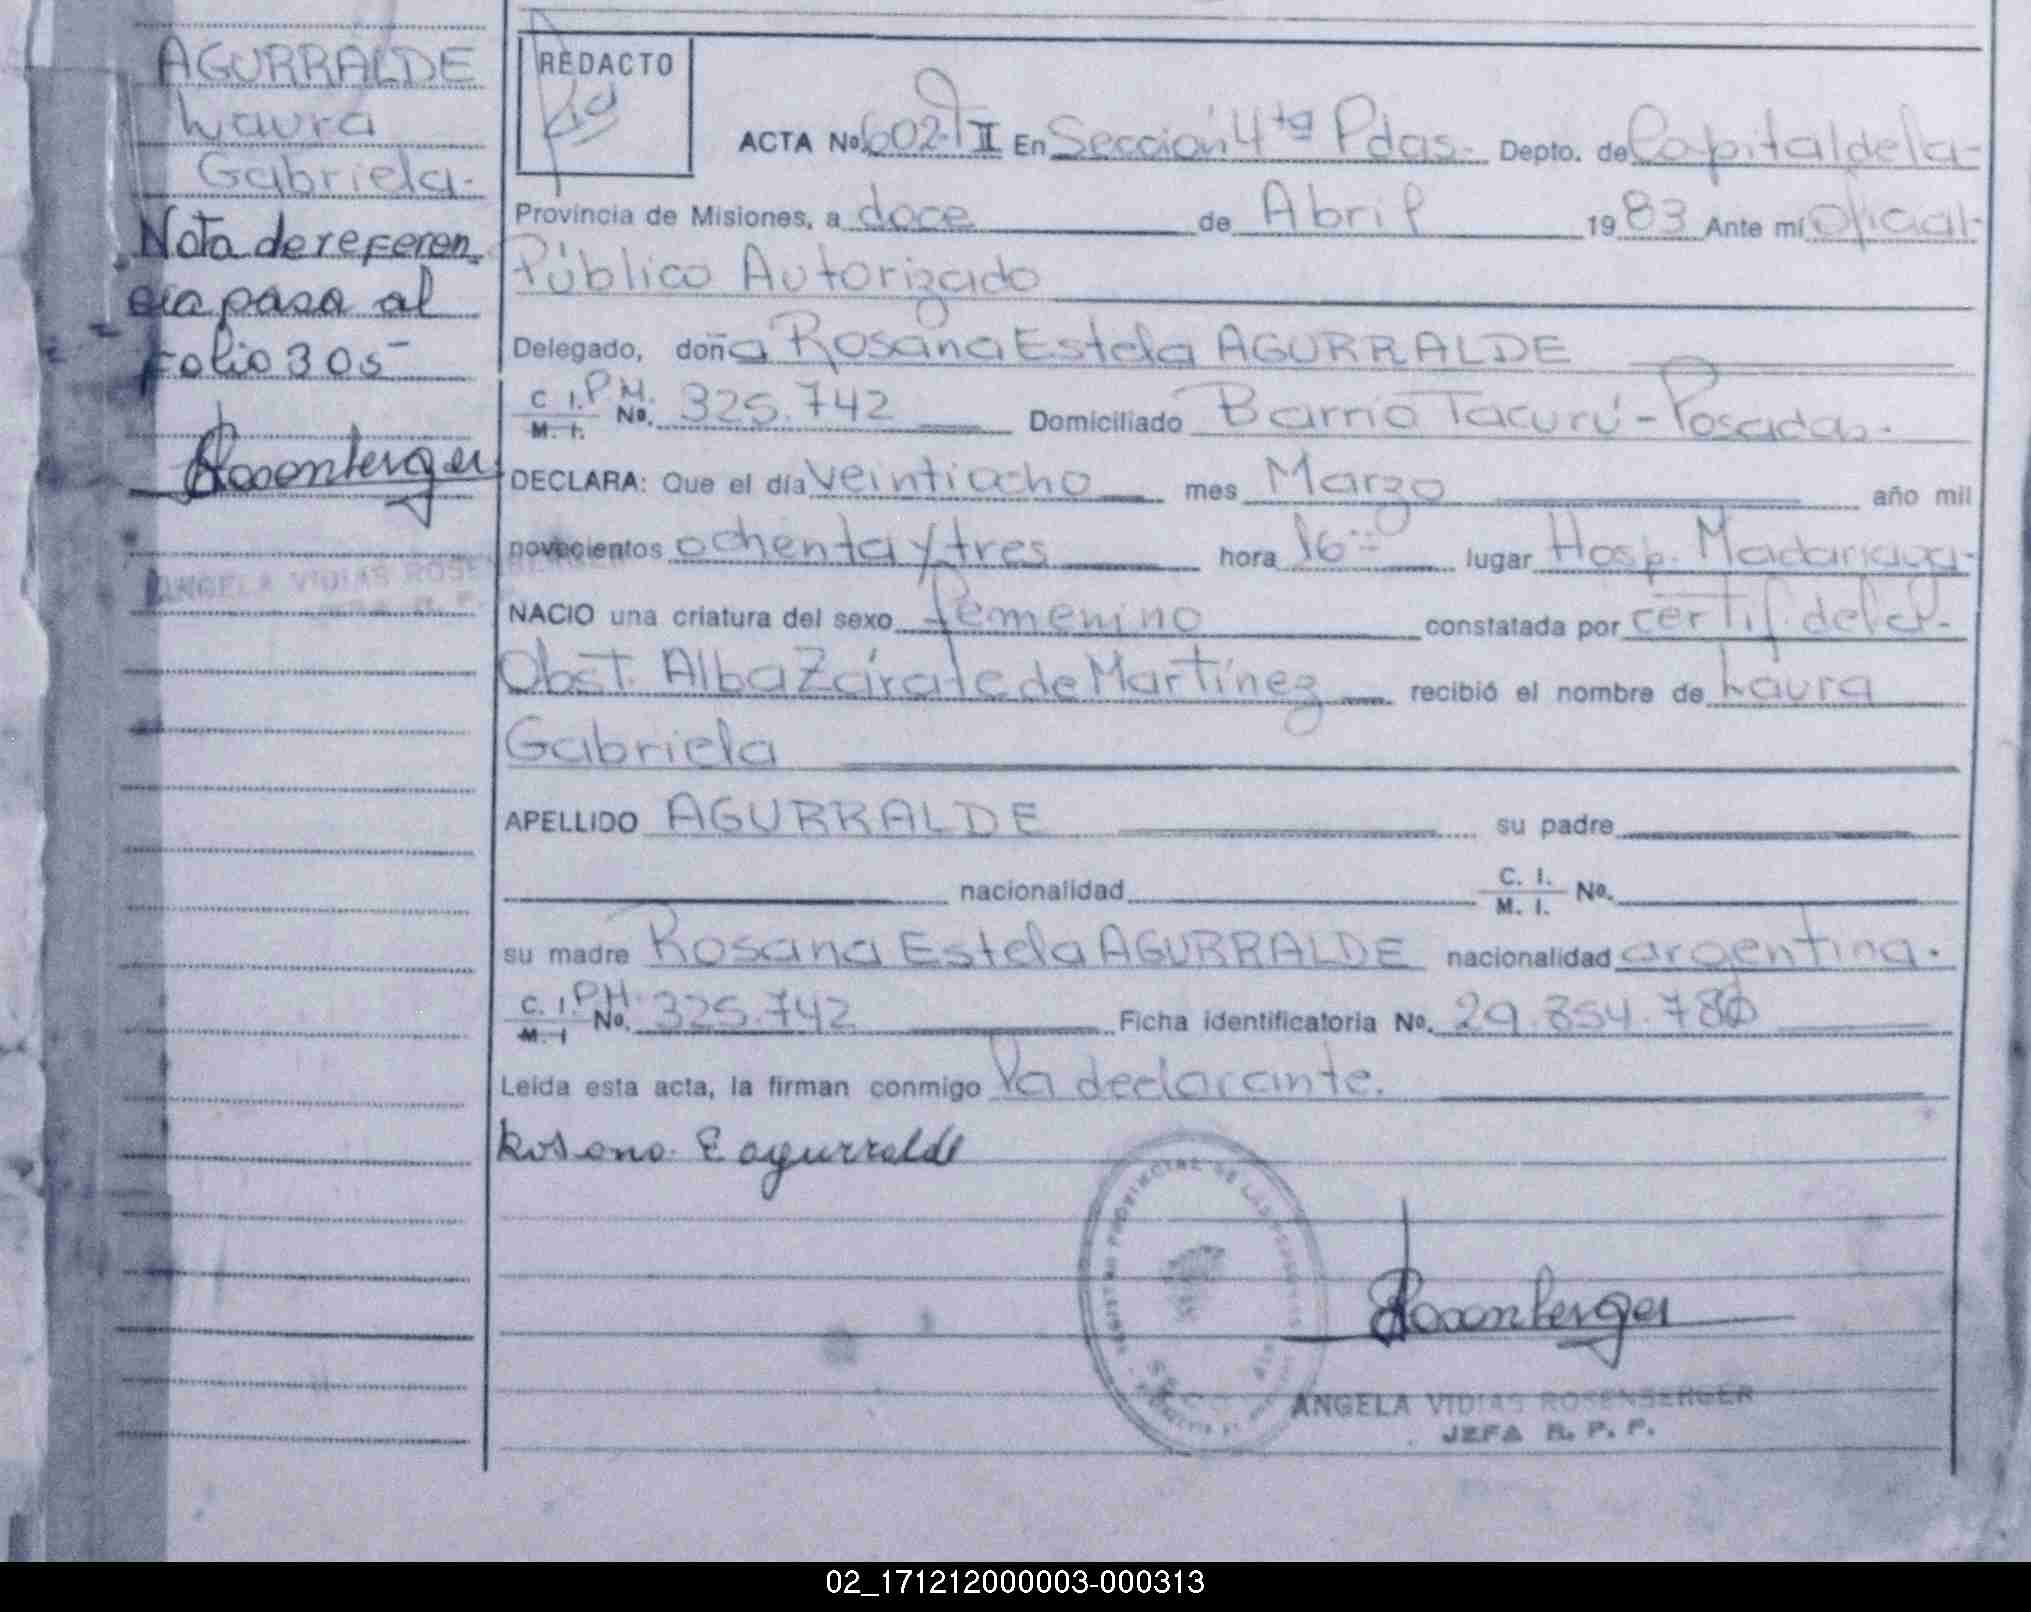 AGURRALDE
Laura
Gabriela-
Nota de referen
cia pasa al
Folio 305
Rosenberger
ANGELA VIDIAS ROSENBERGER
REDACTO
ACTA No 602-T II En Sección 4ta Pdas. Depto. de Capital de la
Provincia de Misiones, a doce de Abril 1983 Ante mí Oficial
Público Autorizado
Delegado, doña Rosana Estela AGURRALDE
C. I. P.M. M. I. No. 325.742 Domiciliado Barrio Tacurú - Posadas.
DECLARA: Que el día veintiocho mes Marzo año mil
novecientos ochenta y tres hora 16 lugar Hosp. Madariaga-
NACIO una criatura del sexo femenino constatada por certif. de la
Obst. Alba Zárate de Martínez recibió el nombre de Laura
Gabriela
APELLIDO AGURRALDE su padre
nacionalidad C. I. M. I. No.
su madre Rosana Estela AGURRALDE nacionalidad argentina.
C. I. P.M. M. I No. 325.742 Ficha identificatoria No. 29.854.780
Leída esta acta, la firman conmigo la declarante.
Rosana E agurralde
REGISTRO PROVINCIAL DE LAS PERSONAS
Rosenberger
ANGELA VIDIAS ROSENBERGER
JEFA R. P. P.
02_171212000003-000313